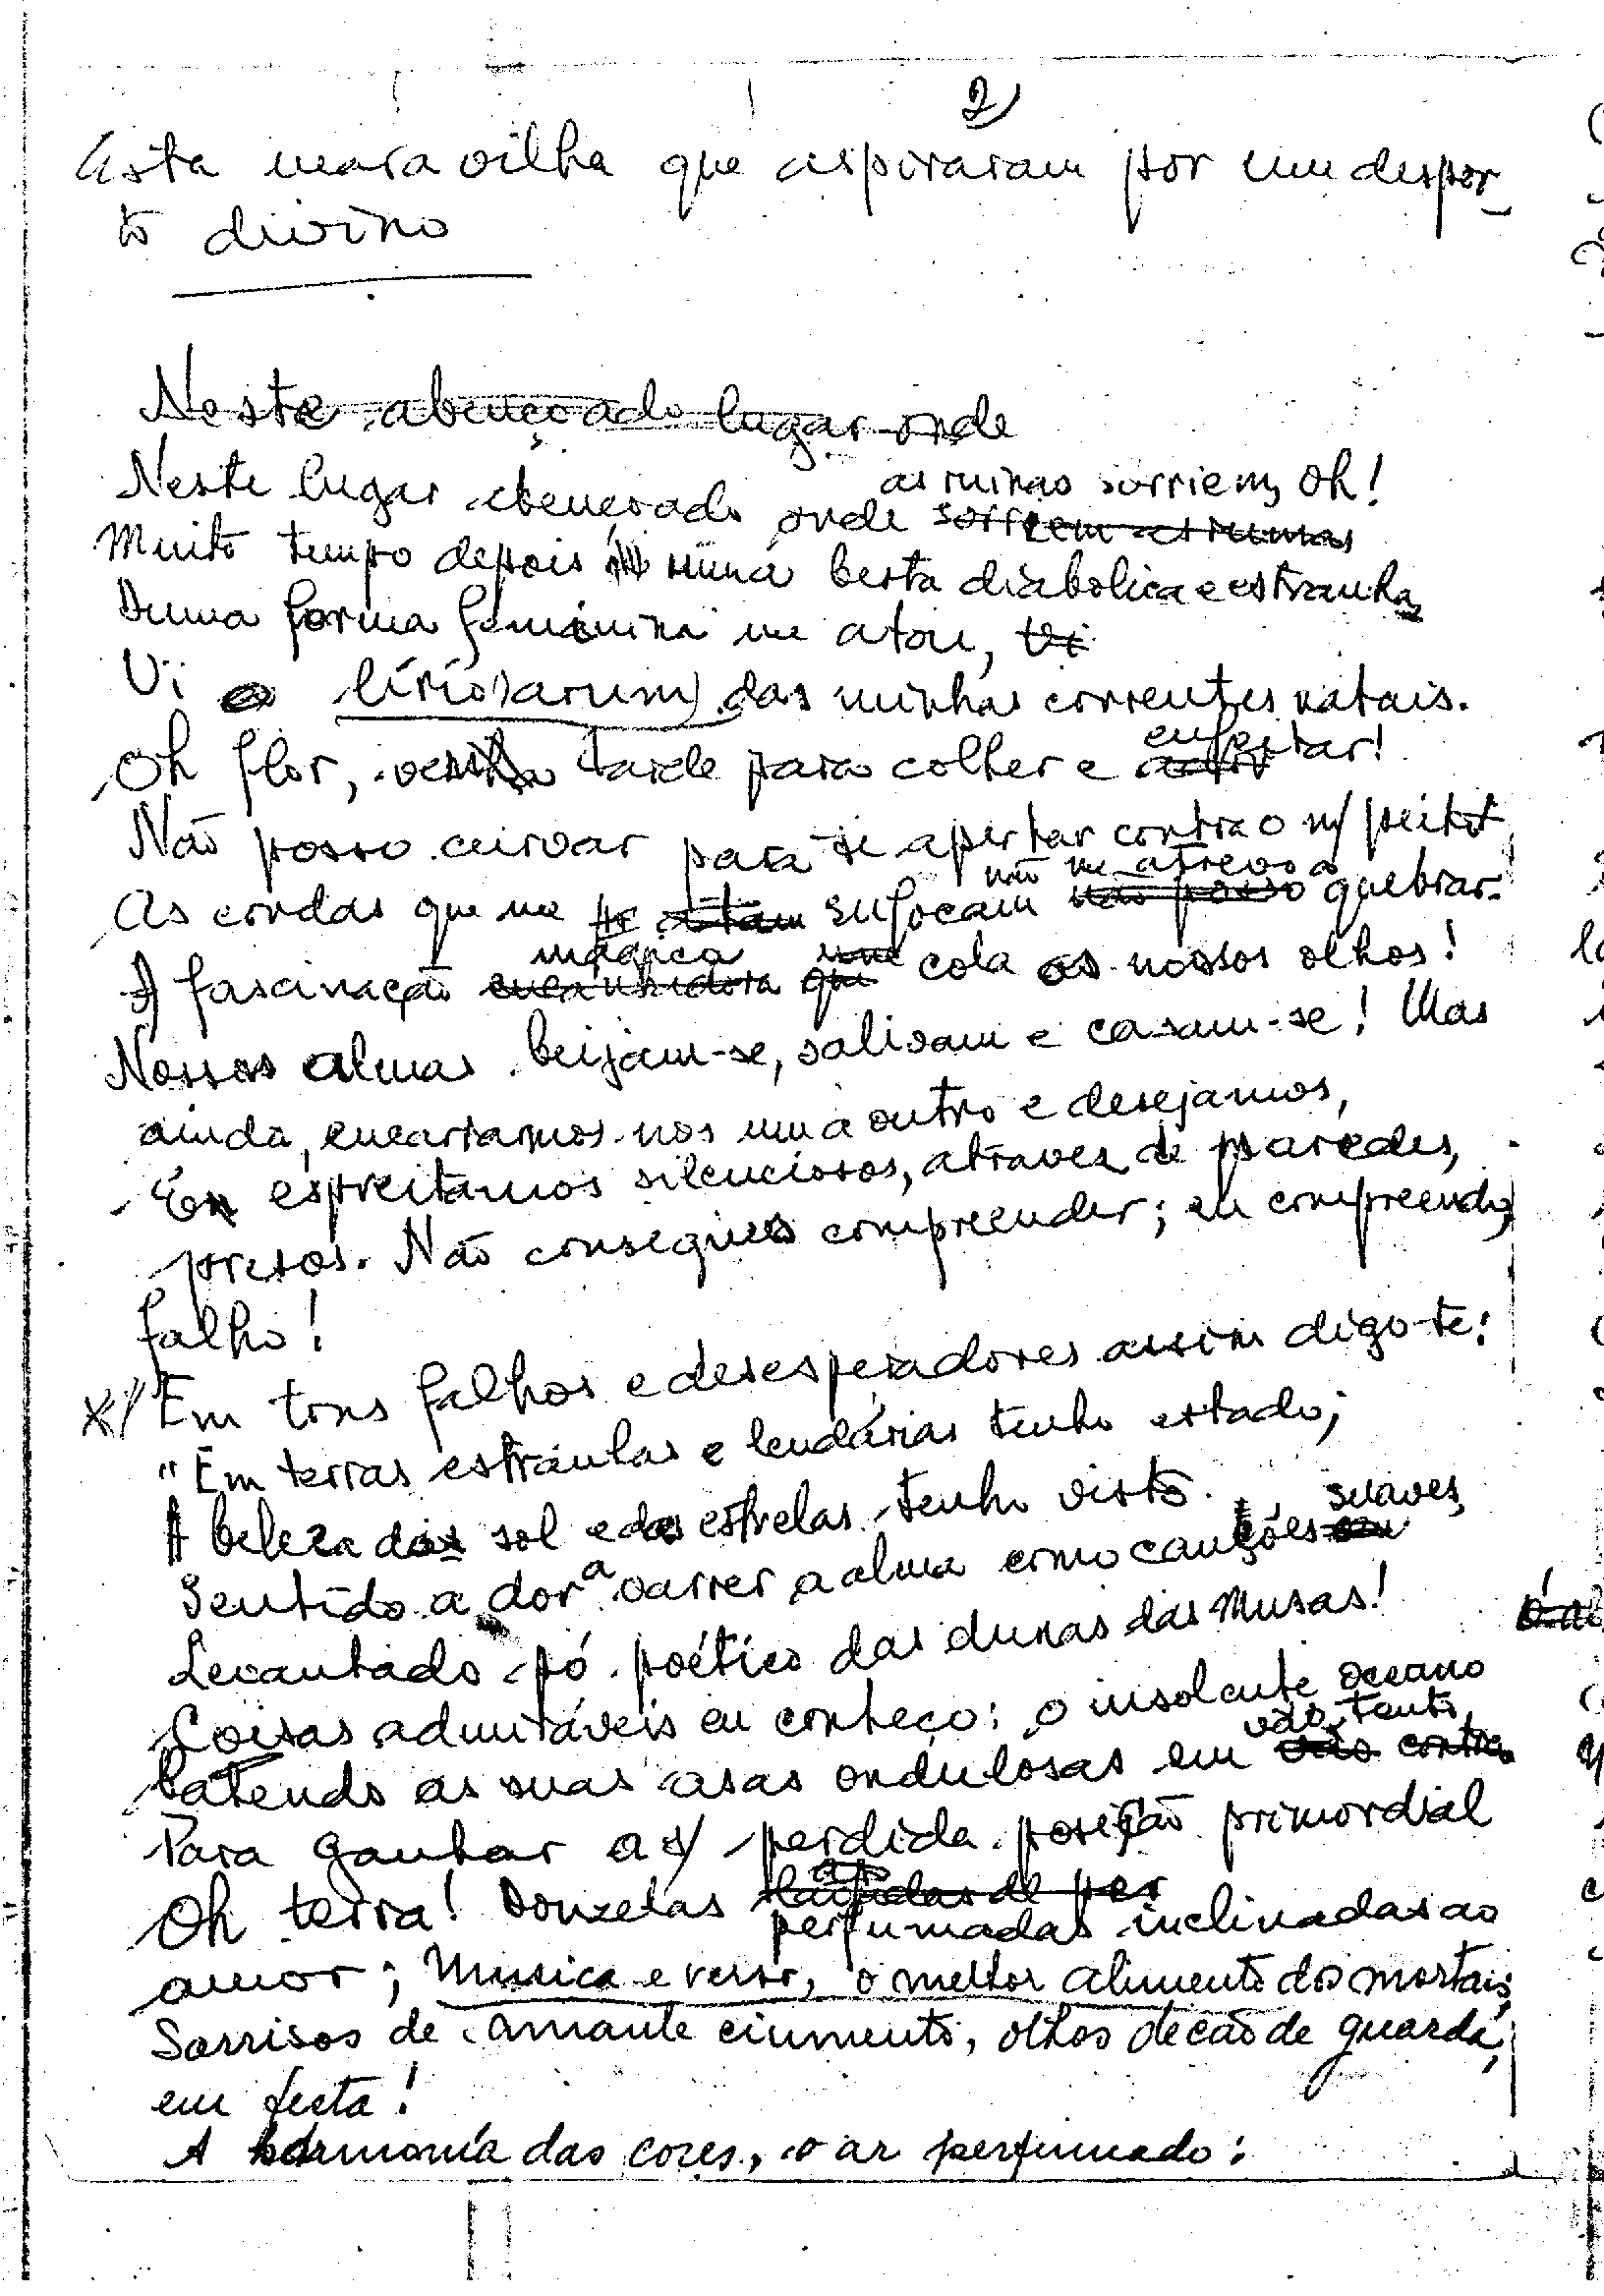 2)
Esta maravilha que aspiraram por um desper-
to divino
Neste abençoado lugar onde
as ruinas sorriem, Oh!
Neste lugar abençoado onde sorriem as ruinas
Muito tempo depois numa besta diabolica e estranha
Duma forma feminina me atou, Vi
Vi o lírio (arum) das minhas correntes natais.
enfeitar!
Oh flor, venho tarde para colher e
Não posso curvar para te apertar contra o m/ peito
não me atrevo a
As cordas que me atam sufocam não posso quebrar.
mágica nos
A fascinação encantadora que cola os nossos olhos!
Nossas almas beijam-se, salivam e casam-se! Mas
ainda, encaramos-nos um a outro e desejamos,
E espreitamos silenciosos, atraves de paredes,
presos. Não consegues compreender; eu compreendo,
falho!
x/ Em tons falhos e desesperadores assim digo-te:
"Em terras estranhas e lendárias tenho estado;
A beleza do sol e das estrelas tenho visto.
suaves,
Sentido a dor a varrer a alma como canções
Levantado pó poético das dunas das Musas!
Coisas admiráveis eu conheço: o insolente oceano
vão tento
batendo as suas asas ondulosas em vão contra
Para ganhar a s/ perdida posição primordial
Oh terra! Donzelas de per
perfumadas inclinadas ao
amor; Musica e verso, o melhor alimento dos mortais
Sorrisos de amante ciumento, olhos de cão de guarda,
em festa!
A harmonia das cores, o ar perfumado: